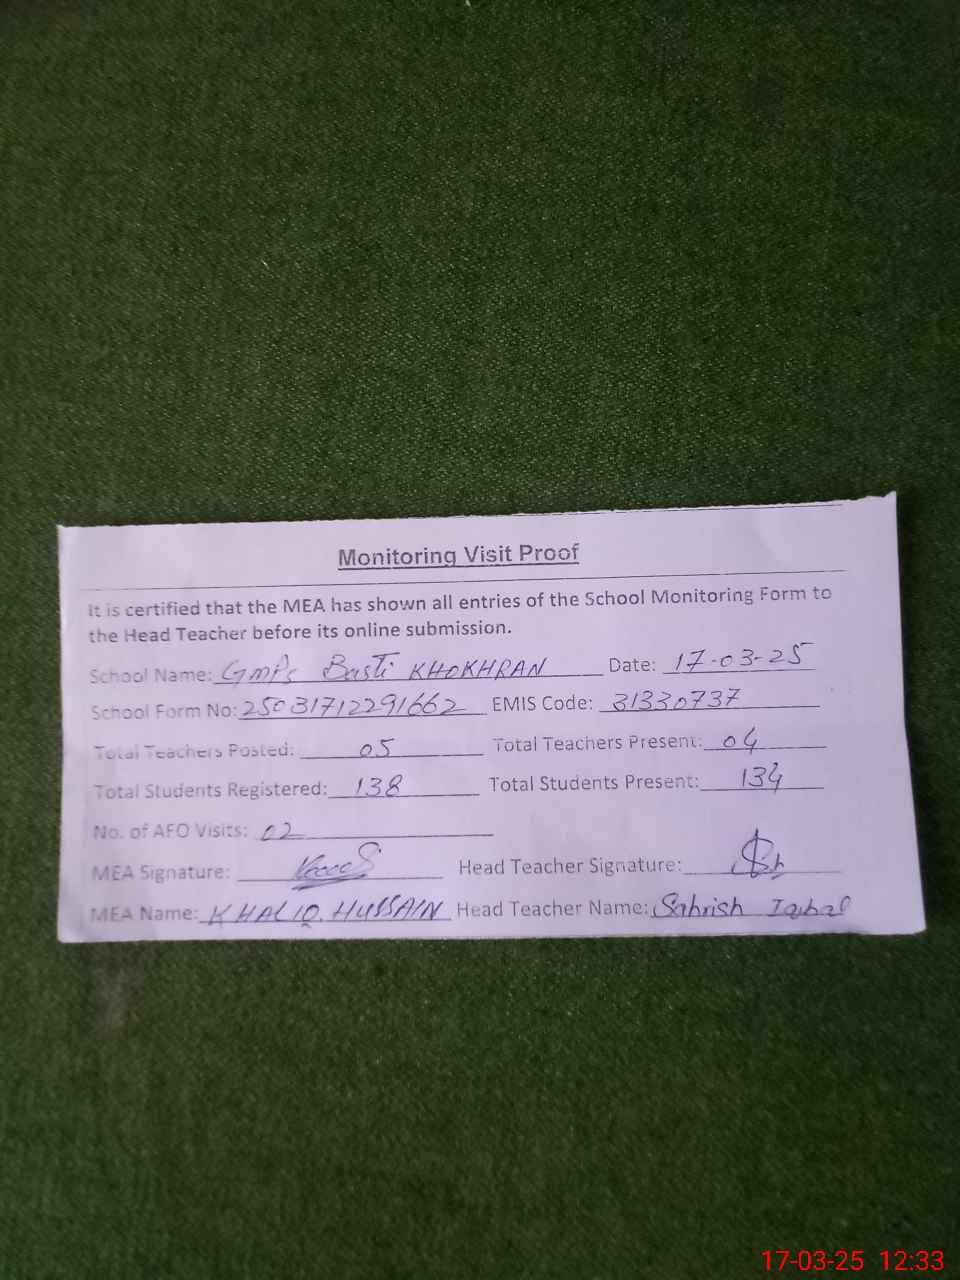 Monitoring Visit Proof
It is certified that the MEA has shown all entries of the School Monitoring Form to
the Head Teacher before its online submission.
School Name: GMPS Basti KHOKHRAN Date: 17-03-25
School Form No: 25031712291662 EMIS Code: 31330737
Total Teachers Posted: 05 Total Teachers Present: 04
Total Students Registered: 138 Total Students Present: 134
No. of AFO Visits: 02
MEA Signature: Head Teacher Signature:
MEA Name: KHALIQ HUSSAIN Head Teacher Name: Sahrish Iqbal
17-03-25 12:33